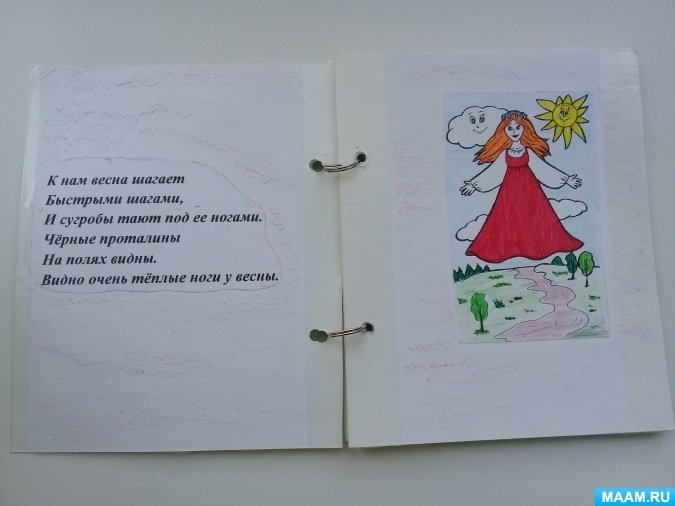 К нам весна шагает
Быстрыми шагами,
И сугробы тают под ее ногами.
Чёрные проталины
На полях видны.
Видно очень тёплые ноги у весны.
MAAM.RU